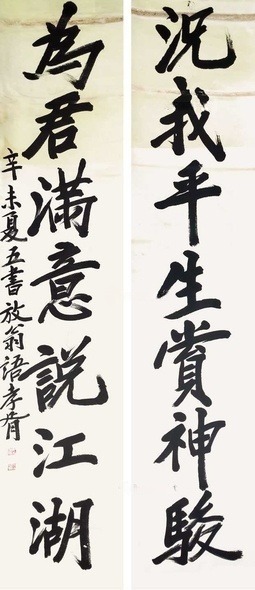 况我平生賞神駿
為君滿意說江湖
辛未夏五書放翁語孝胥